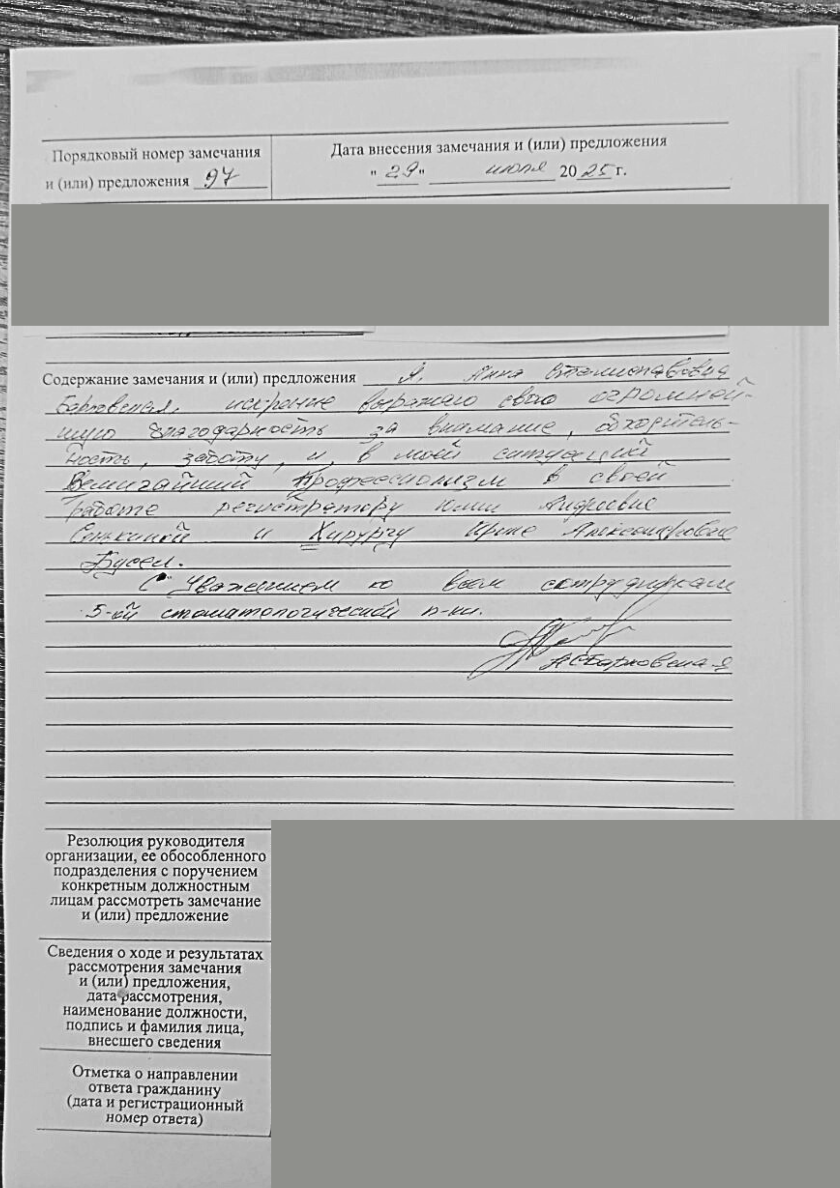 Порядковый номер замечания
и (или) предложения 97
Дата внесения замечания и (или) предложения
" 29 " июля 20 25 г.
Содержание замечания и (или) предложения Я, Анна Станиславовна
Барковская, искренне выражаю свою огромней-
шую благодарность за внимание, обходитель-
ность, заботу, и, в моей ситуации
Величайший Профессионализм в своей
работе регистратору Юлии Андреевне
Сенькиной и Хирургу Ирине Александровне
Бусел.
С Уважением ко всем сотрудникам
5-ой стоматологической п-ки.
АСБарковская
Резолюция руководителя
организации, ее обособленного
подразделения с поручением
конкретным должностным
лицам рассмотреть замечание
и (или) предложение
Сведения о ходе и результатах
рассмотрения замечания
и (или) предложения,
дата рассмотрения,
наименование должности,
подпись и фамилия лица,
внесшего сведения
Отметка о направлении
ответа гражданину
(дата и регистрационный
номер ответа)